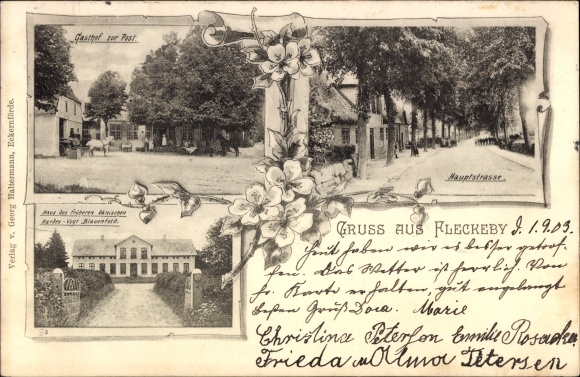 Gasthof zur Post.
Hauptstrasse.
Haus des früheren Dänischen
Hardes-Vogt Blauenfeld.
Verlag v. Georg Haltermann, Eckernförde.
GRUSS AUS FLECKEBY d. 1.9.03.
Heut haben wir es besser getrof-
fen. Das Wetter ist herrlich. Von
Karte erhalten, gut angelangt
besten Gruß Dora. Marie
Christina Peterson Emilie
Frieda u Alma Petersen